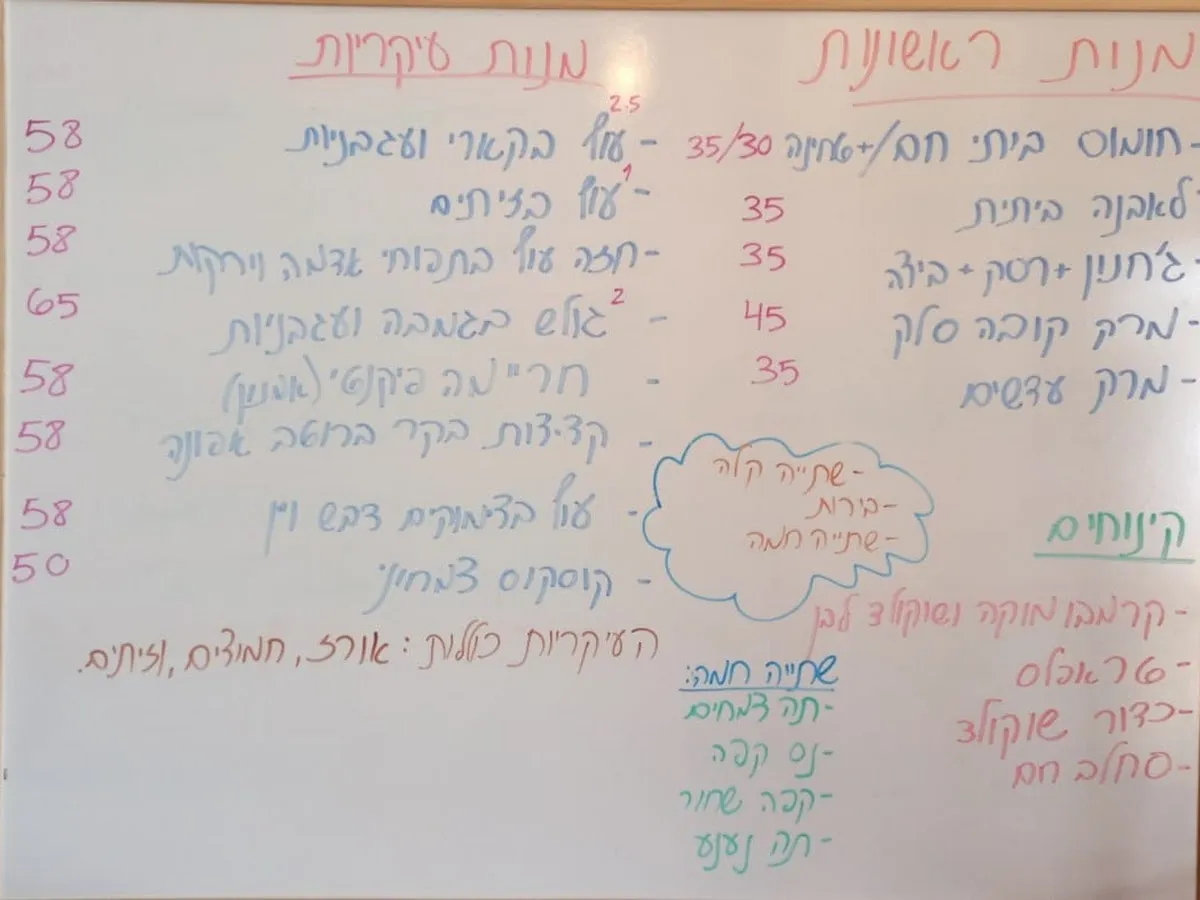 מנות ראשונות
- חומוס ביתי חם/+טחינה 35/30
- לאבנה ביתית 35
- ג'חנון + רסק + ביצה 35
- מרק קובה סלק 45
- מרק עדשים 35
מנות עיקריות
2.5
- עוף בקארי ועגבניות 58
1
- עוף בזיתים 58
- חזה עוף בתפוחי אדמה וירקות 58
2
- גולש בגמבה ועגבניות 65
- חריימה פיקנטי (אמנון) 58
- קציצות בקר ברוטב אפונה 58
- עוף בצימוקים דבש ויין 58
- קוסקוס צמחוני 50
העיקריות כוללות: אורז, חמוצים, וזיתים.
- שתייה קלה
- בירות
- שתייה חמה
קינוחים
- קרמבו מוקה ושוקולד לבן
- טראפלס
- כדור שוקולד
- סחלב חם
שתייה חמה:
- תה צמחים
- נס קפה
- קפה שחור
- תה נענע